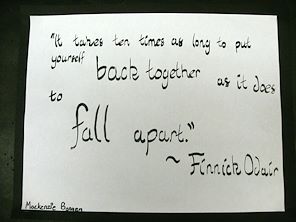 "It takes ten times as long to put
yourself back together as it does
to
fall apart."
~ Finnick Odair
Mackenzie